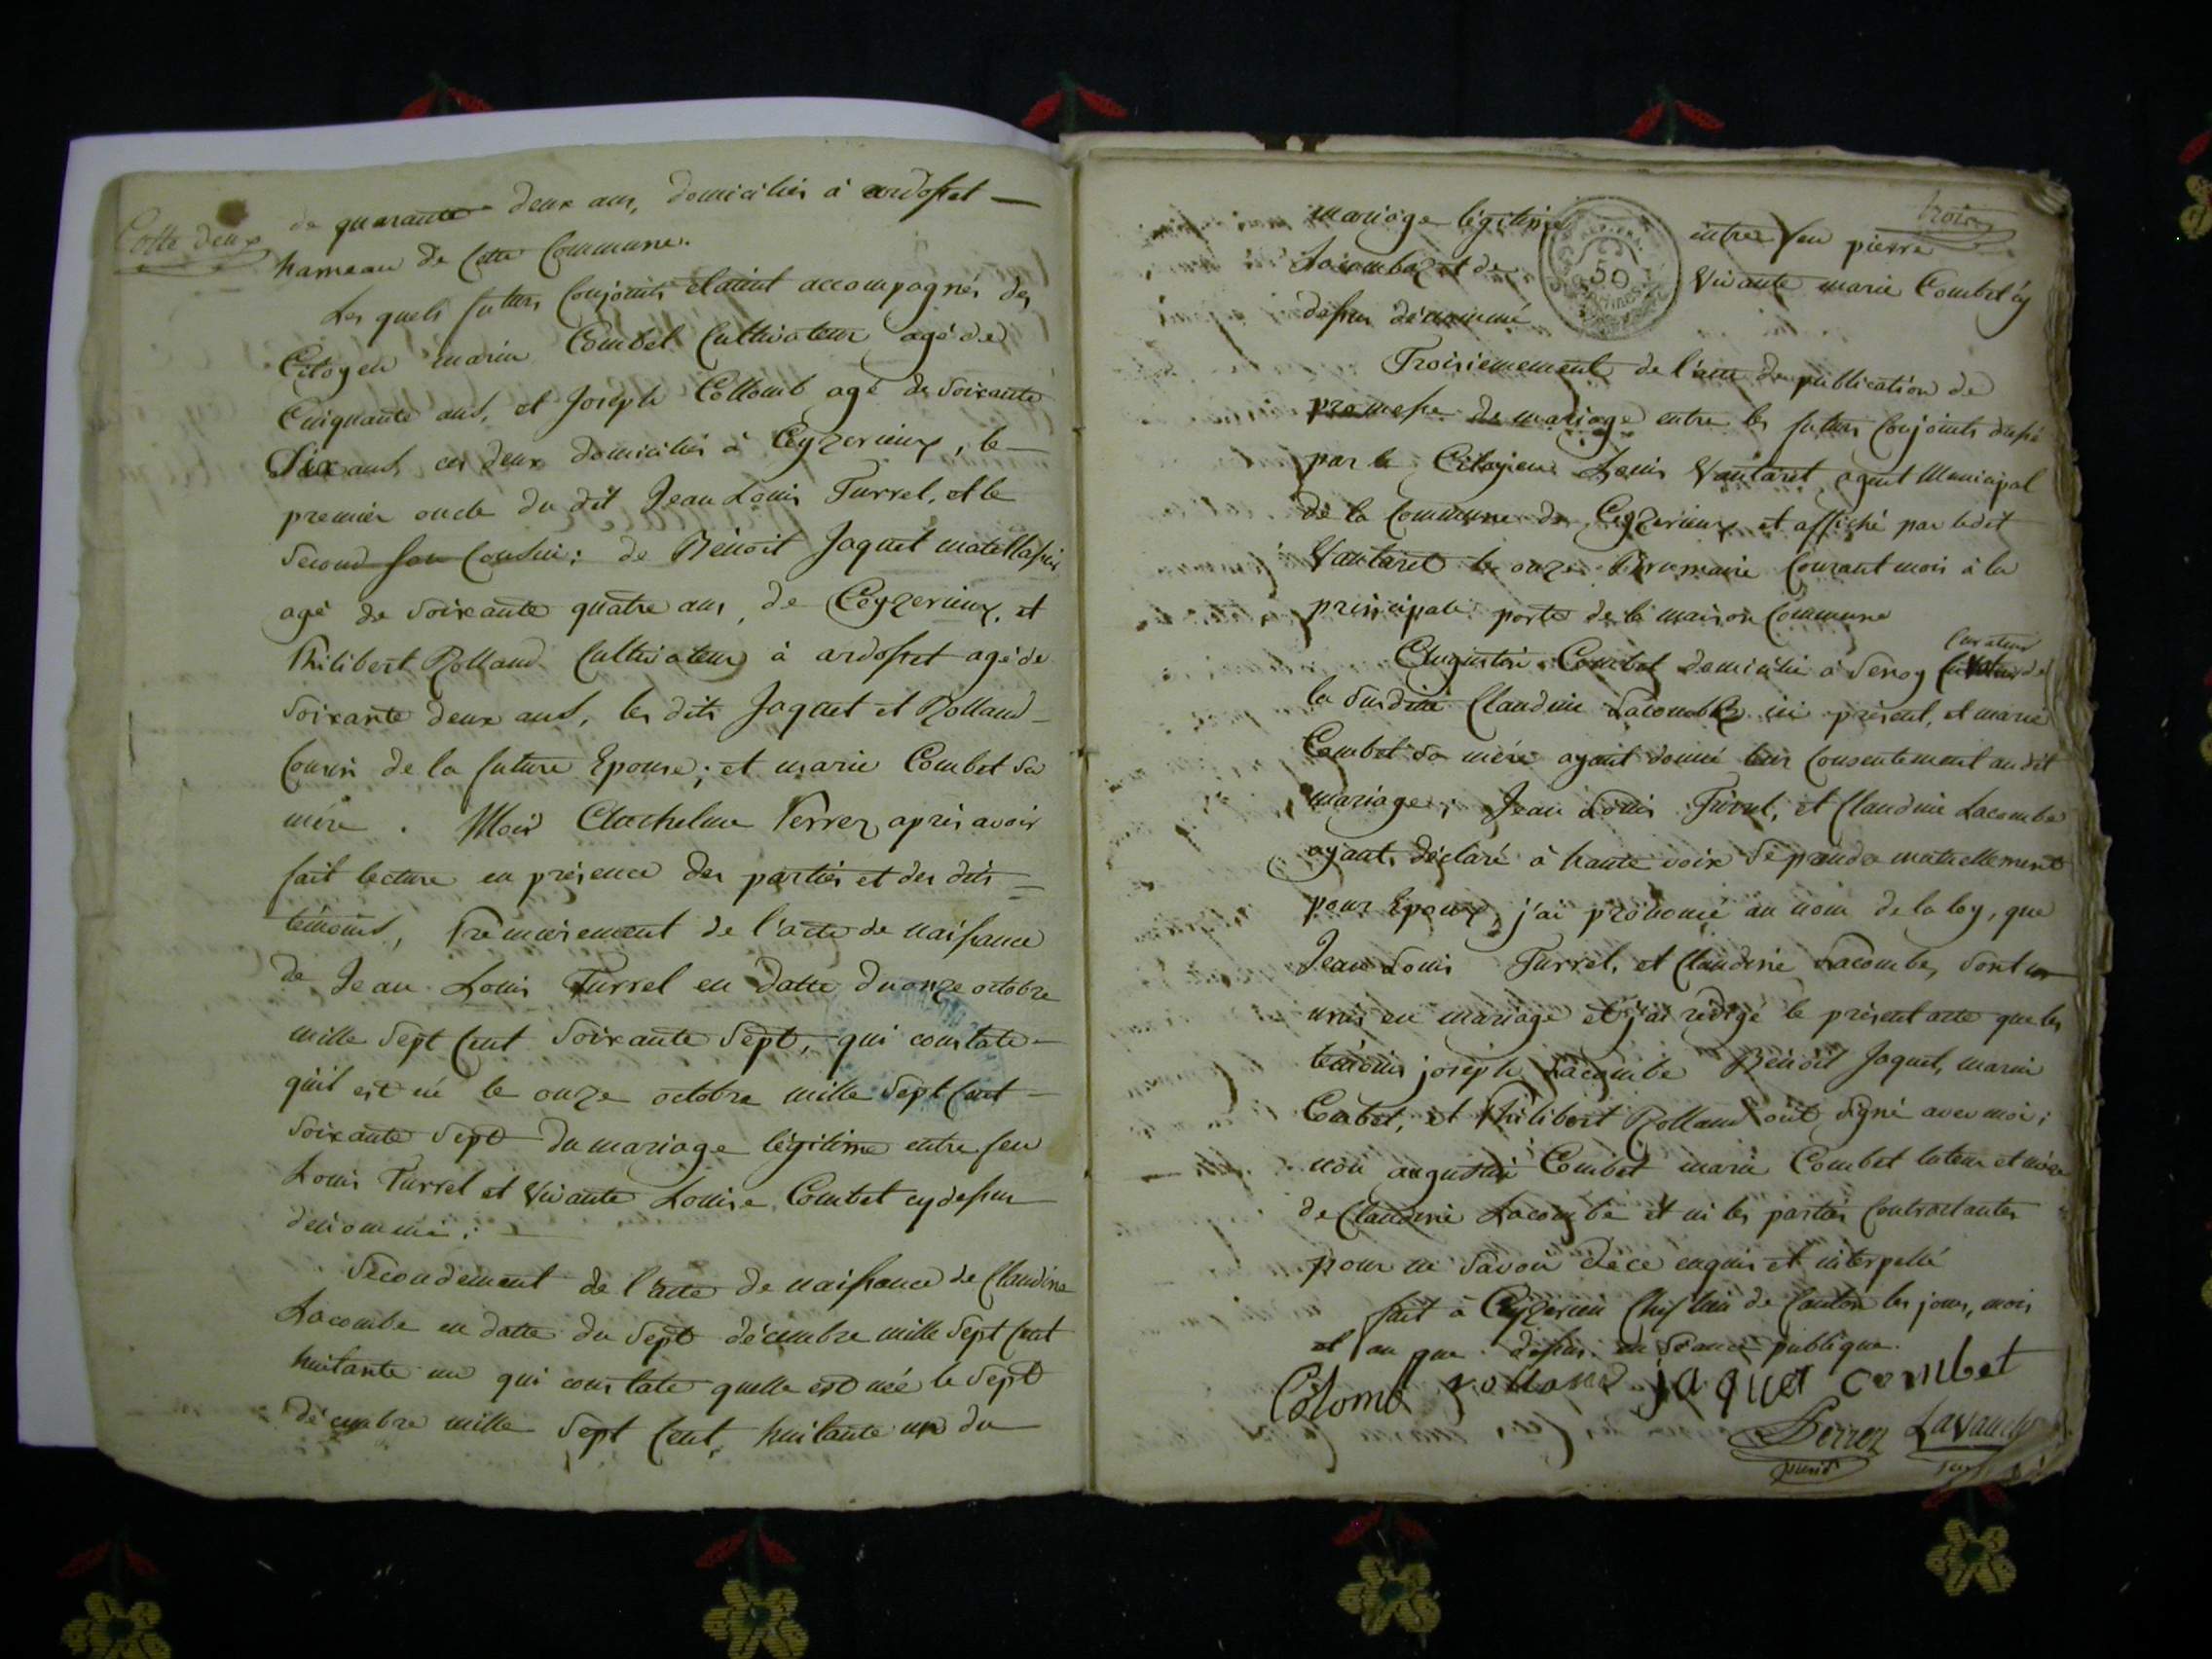 Cotte deux
de quarante deux ans, domiciliés à ardosset
hameau de Cette Commune.
Les quels futurs Conjoints étaient accompagnés des
Citoyen marin Combet Cultivateur agé de
Cinquante ans, et Joseph Collomb agé de Soixante
Six ans, ces deux domiciliés à Ceyzerieux, le
premier oncle du dit Jean Louis Turrel, et le
Second son Cousin; de Benoit Jaquet
agé de Soixante quatre ans, de Ceyzerieux, et
Philibert Rolland Cultivateur à ardosset agé de
Soixante deux ans, les dits Jaquet et Rolland
Cousin de la future Epouse; et marie Combet Sa
mère. Moi Anthelme Perrez après avoir
fait lecture en présence des parties et des dits
témoins, Premierement de l'acte de naissance
de Jean Louis Turrel en datte du onze octobre
mille Sept Cent Soixante Sept, qui constate
qu'il est né le onze octobre mille Sept Cent
Soixante Sept du mariage légitime entre feu
Louis Turrel et Vivante Louise Combet cy dessus
denommé;
Secondement de l'acte de naissance de Claudine
Lacombe en datte du Sept décembre mille Sept Cent
huitante un qui constate quelle est née le Sept
décembre mille Sept Cent, huitante un du
trois
mariage légitime entre feu pierre
Lacombe et de Vivante marie Combet cy
dessus dénommé
50
Troisiemement de l'acte de publication de
promesse de mariage entre les futurs Conjoints dressé
par le Citoyen Louis Vautaret agent Municipal
de la Commune de Ceyzerieux et affiché par ledit
Vautaret le onze Brumaire Courant mois à la
principale porte de la maison Commune
Curateur
Augustin Combet domicilié à Serroy de
la Susdite Claudine Lacombe ici présent, et marie
Combet Sa mère ayant donné leur Consentement au dit
mariage; Jean Louis Turrel, et Claudine Lacombe
ayant déclaré à haute voix Se prendre mutuellement
pour Epoux, j'ai prononcé au nom de la loy, que
Jean Louis Turrel, et Claudine Lacombe, Sont
unis en mariage et j'ai rédigé le présent acte que les
témoins joseph Lacombe Benoit Jaquet, marin
Combet, et Philibert Rolland ont Signé avec moi;
non augustin Combet marie Combet tuteur et mère
de Claudine Lacombe et ni les parties Contractantes
pour ne Savoir de ce enquis et interpellé
fait à Ceyzerieu Chef lieu de Canton les jour, mois
et an que dessus en Séance publique.
Colomb rolland jaquet combet
Perrez